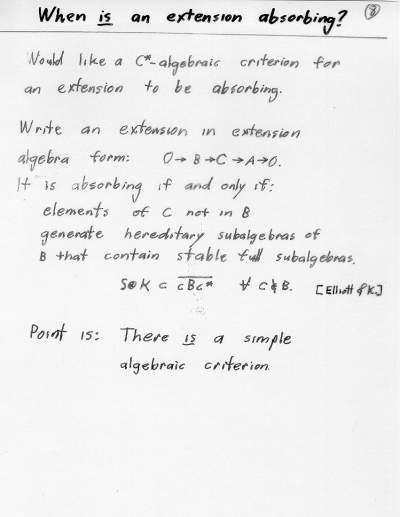 When is an extension absorbing? ⑧
Would like a C*-algebraic criterion for
an extension to be absorbing.
Write an extension in extension
algebra form: O→B→C→A→O.
It is absorbing if and only if:
elements of C not in B
generate hereditary subalgebras of
B that contain stable full subalgebras.
S⊗K ⊂ \overline{cBc*} ∀ c∉B. [Elliott & K.]
Point is: There is a simple
algebraic criterion.